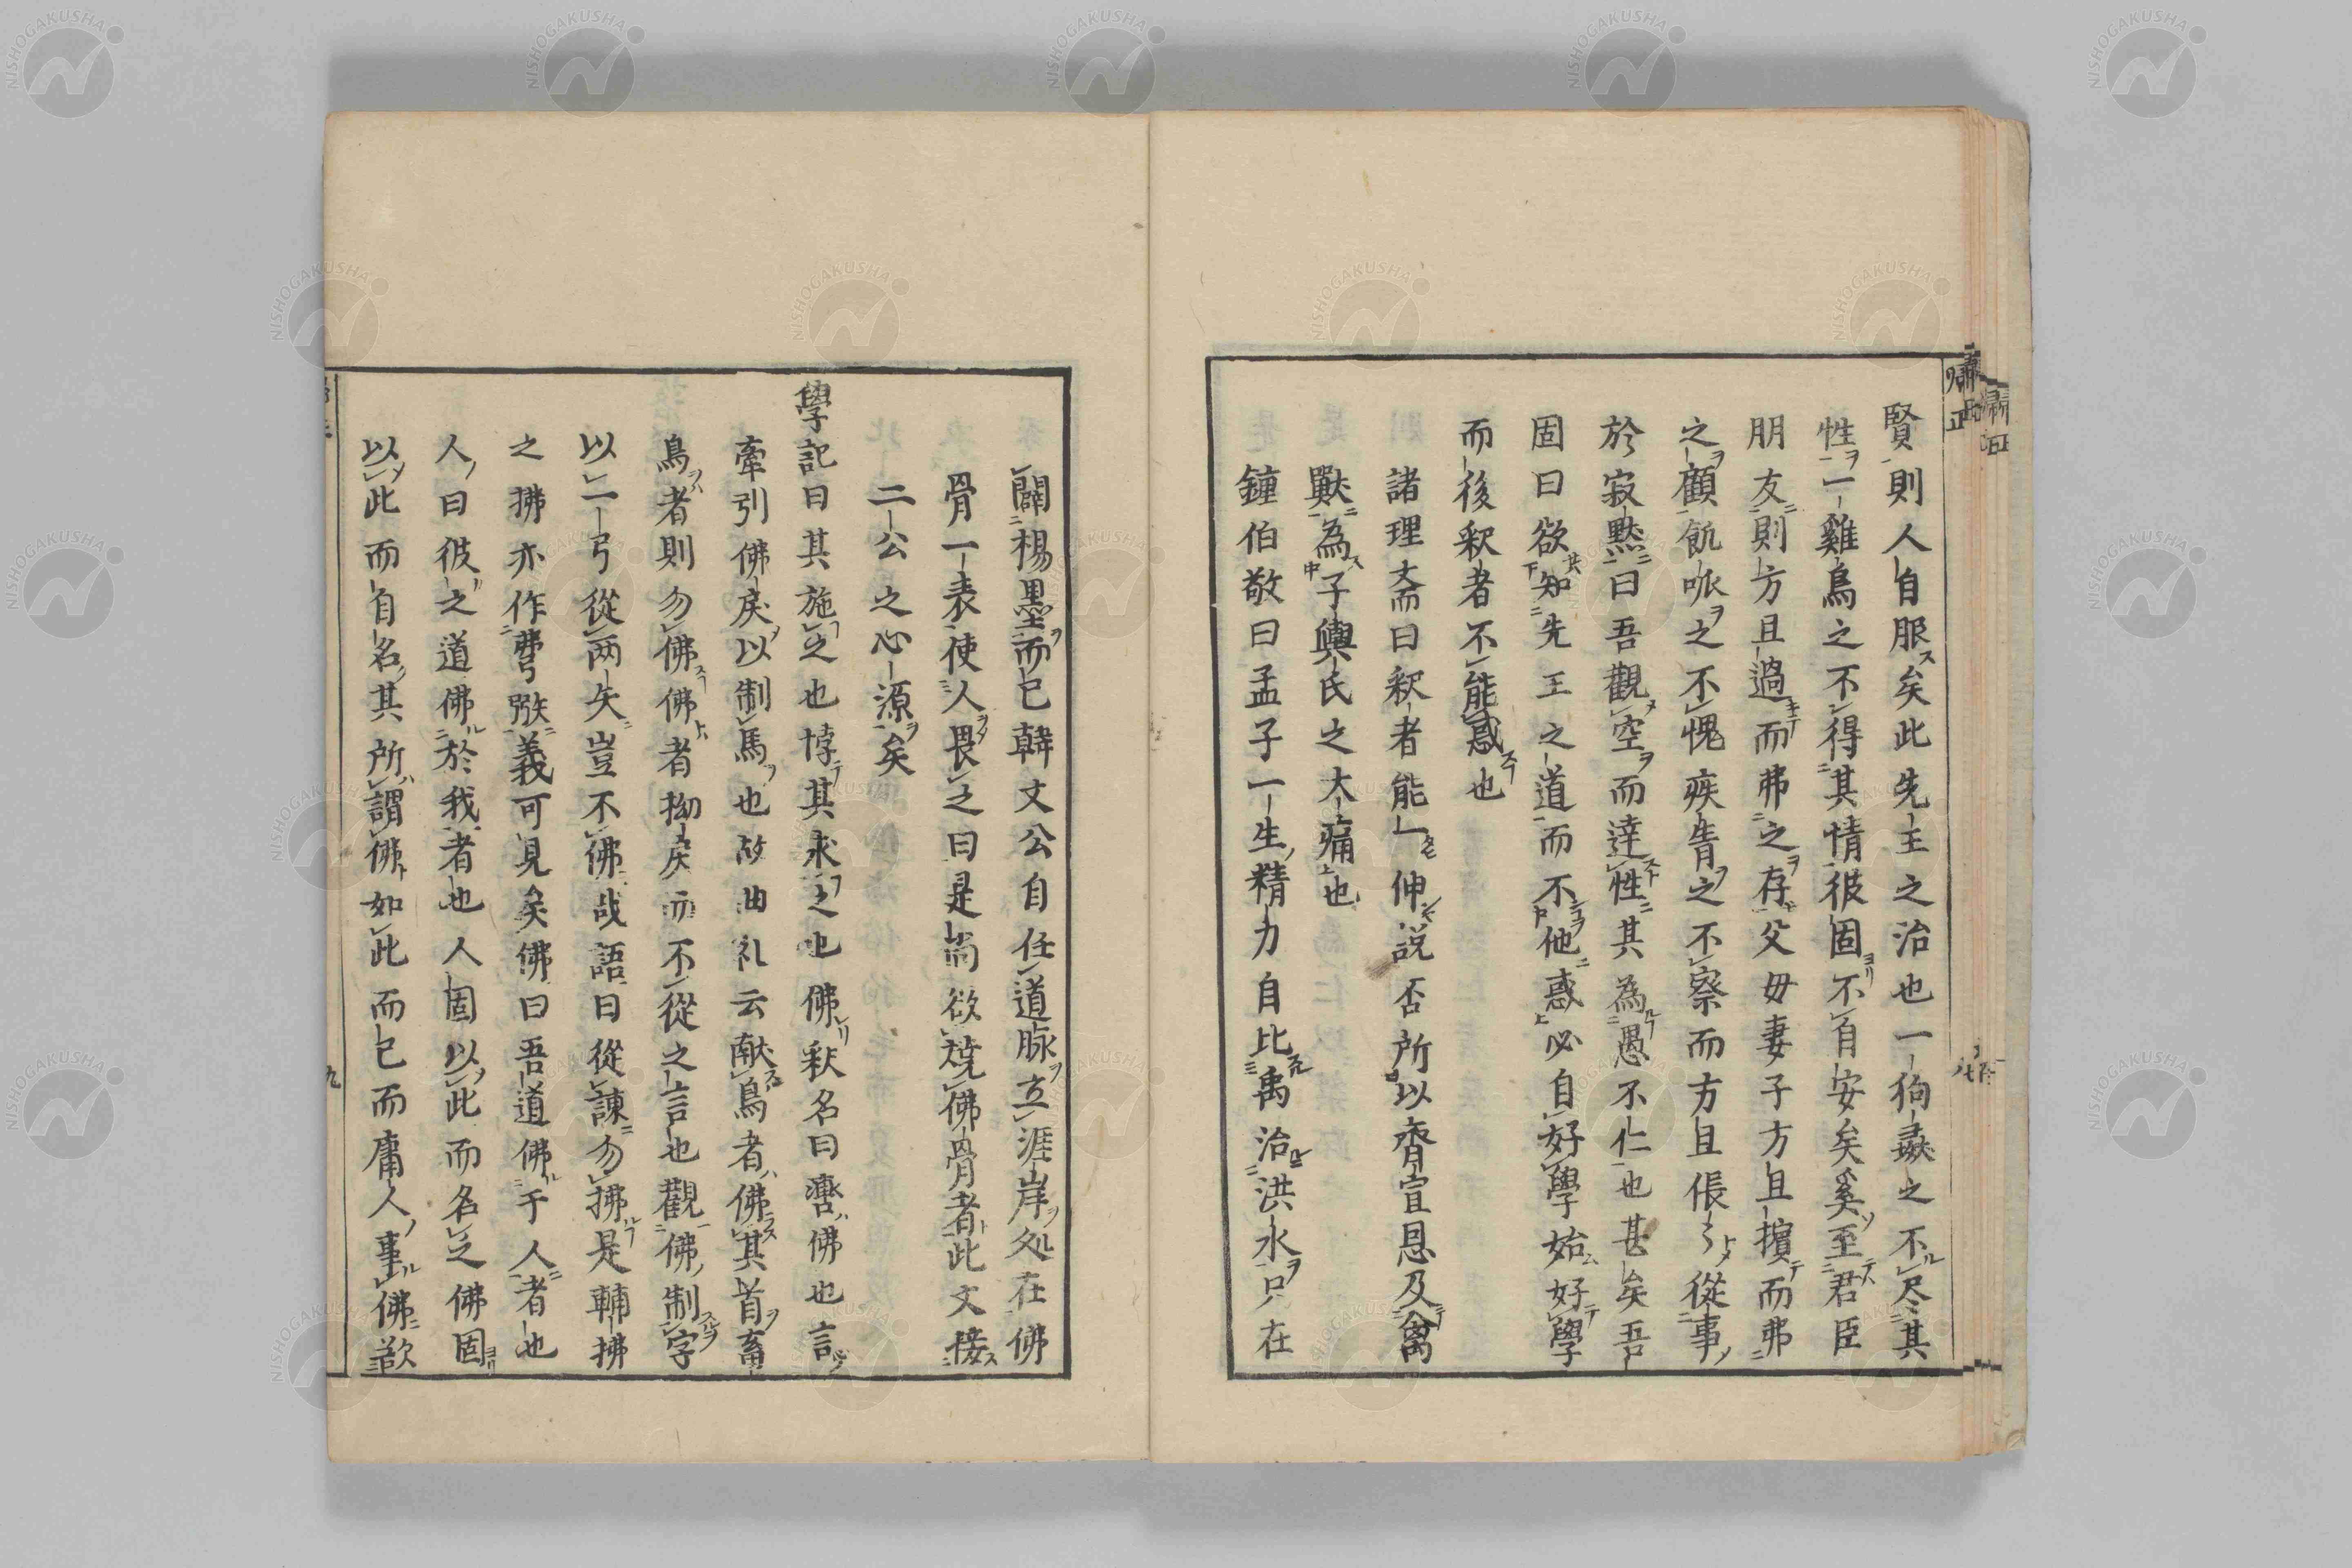 賢則人自服矣此先王之治也一狗彘之不尽其
性一雞鳥之不得其情彼固不自安矣奚至君臣
朋友則方且過而弗之存父母妻子方且擯而弗
之顧飢哌之不愧疾眚之不察而方且倀〻從事
於寂黙曰吾觀空而達性其為愚不仁也甚矣吾
固曰欲知先王之道而不他惑必自好學始好學
而後釈者不能惑也
諸理斎曰釈者能伸説否所以齊宣恩及禽
獸為子輿氏之大痛也
鍾伯敬曰孟子一生精力自比禹治洪水只在
闢楊墨而已韓文公自任道脉立涯岸処在佛
骨一表使人畏之曰是尚欲燒佛骨者此文接
二公之心源矣
學記曰其施之也悖其求之也佛釈名曰轡佛也言
牽引佛戾以制馬也故曲礼云献鳥者佛其首畜
鳥者則勿佛佛者拗戾而不從之言也觀佛制字
以二弓從两矢豈不佛哉語曰從諫勿拂是輔拂
之拂亦作弼義可見矣佛曰吾道佛于人者也
人曰彼之道佛於我者也人固以此而名之佛固
以此而自名其所謂佛如此而已而庸人事佛欲
NISHOGAKUSHA